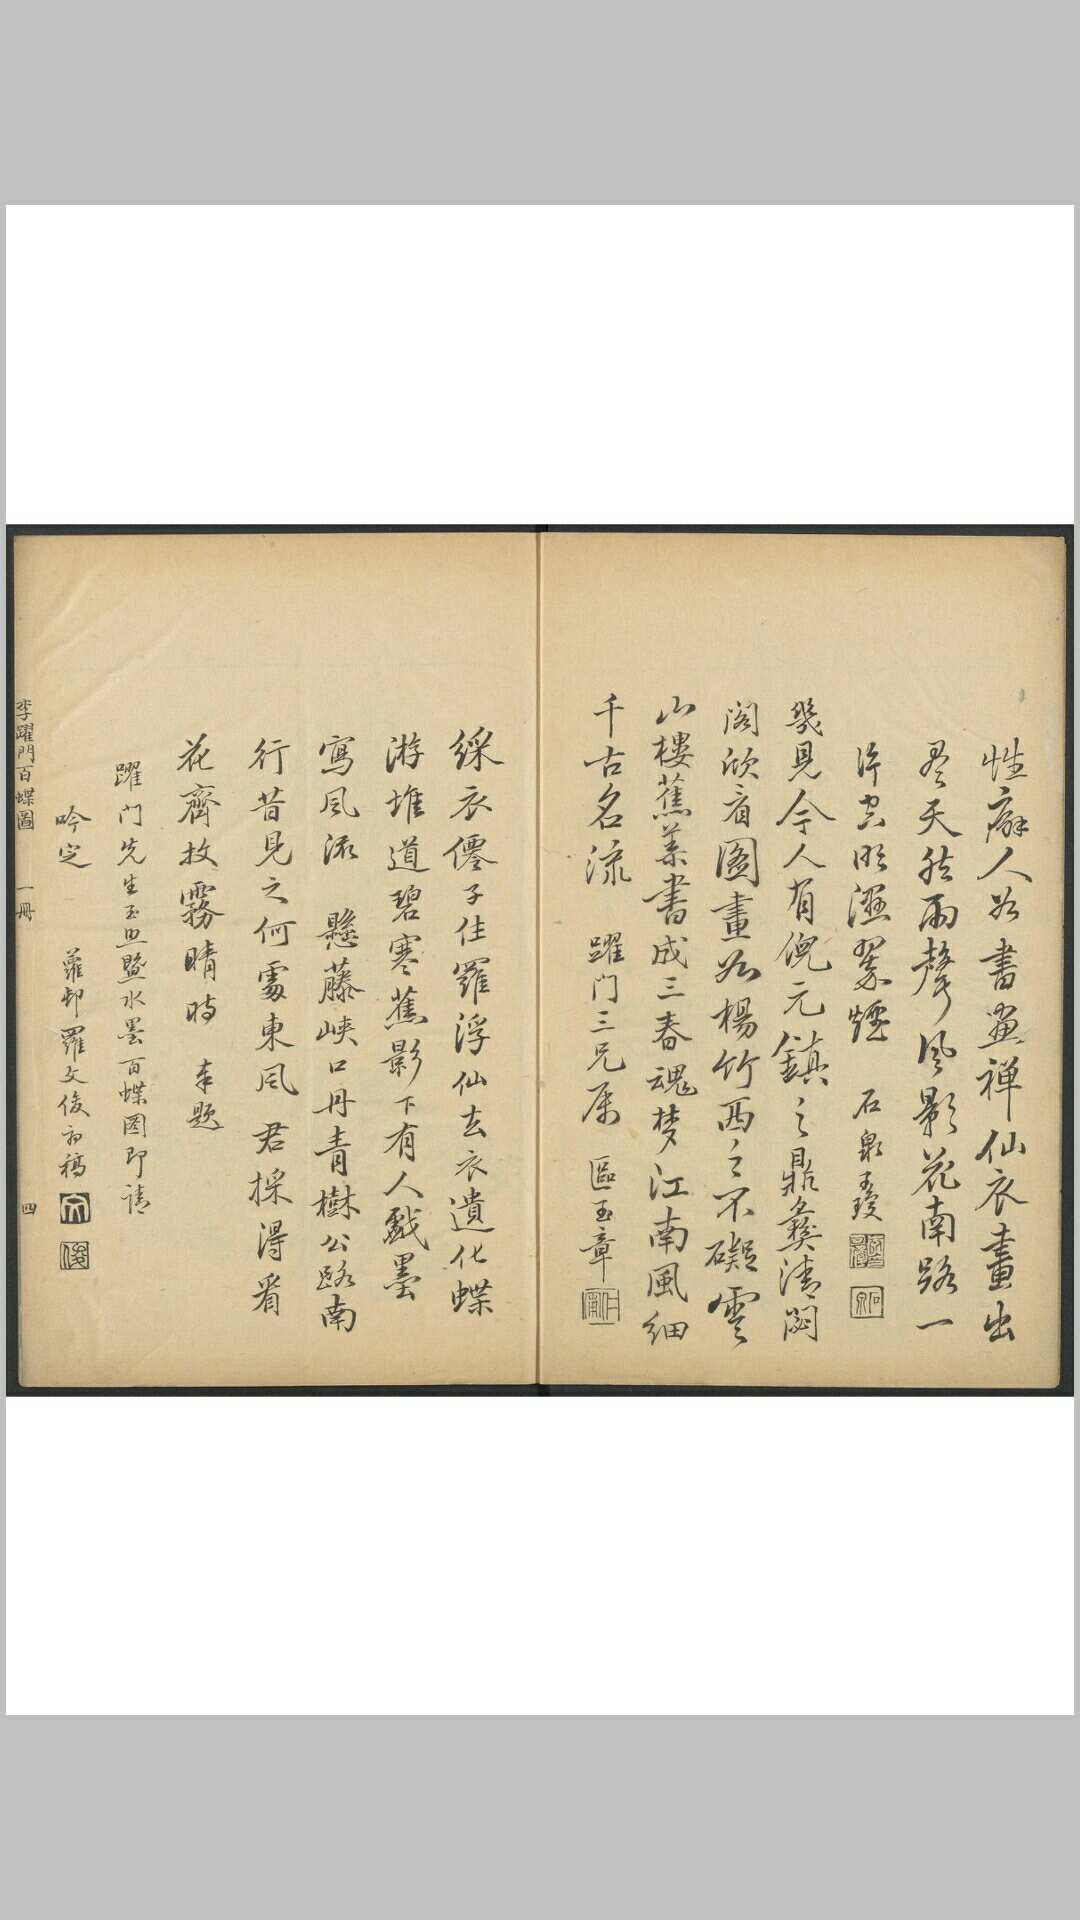 性癖人如書畫禪仙衣畫出
天然雨聲風影花南路一
許空濕翠煙 石泉
幾見今人有倪元鎮之鼎彝清閟
閣欣看圖畫如楊竹西之不礙雲
山樓蕉葉書成三春魂梦江南風細
千古名流 躍门三兄属 區玉章
綵衣僊子住羅浮仙去衣遺化蝶
游堆道碧寒蕉影下有人戲墨
寫風流 懸藤峽口丹青樹公路南
行昔見之何處東风君採得看
花齊放霧晴时 奉题
躍门先生玉照暨水墨百蝶圖即請
吟定 蘿邨羅文俊初稿
李躍門百蝶圖 一冊 四